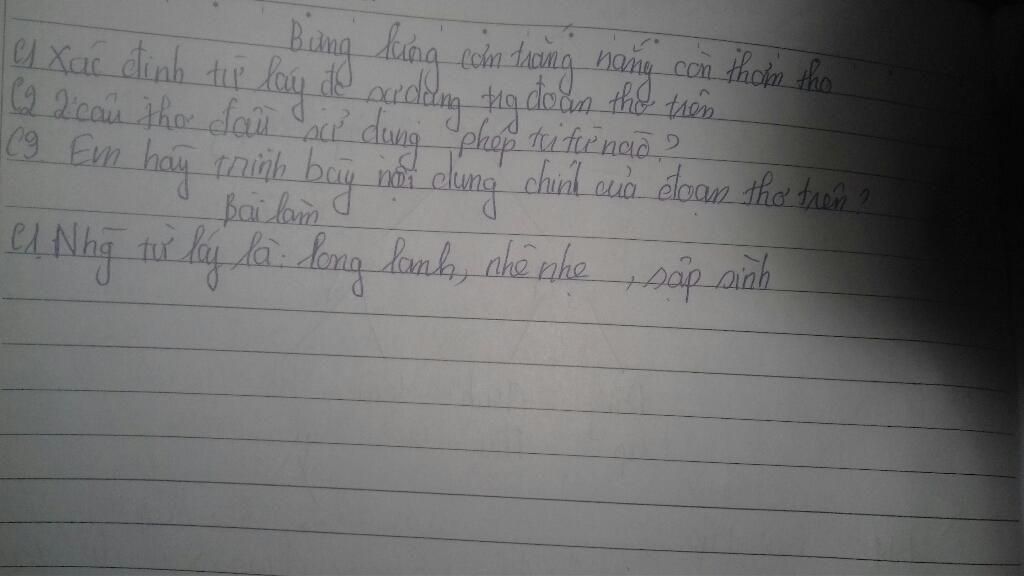 Bừng lưng cơm trắng nắng còn thơm tho
C1 Xác định từ láy đc sử dụng trg đoạn thơ trên
C2 2 câu thơ đầu sử dụng phép tu từ nào?
C3 Em hãy trình bày nội dung chính của đoạn thơ trên?
Bài làm
C1. Nhg từ láy là: long lanh, nhè nhẹ, sập sình